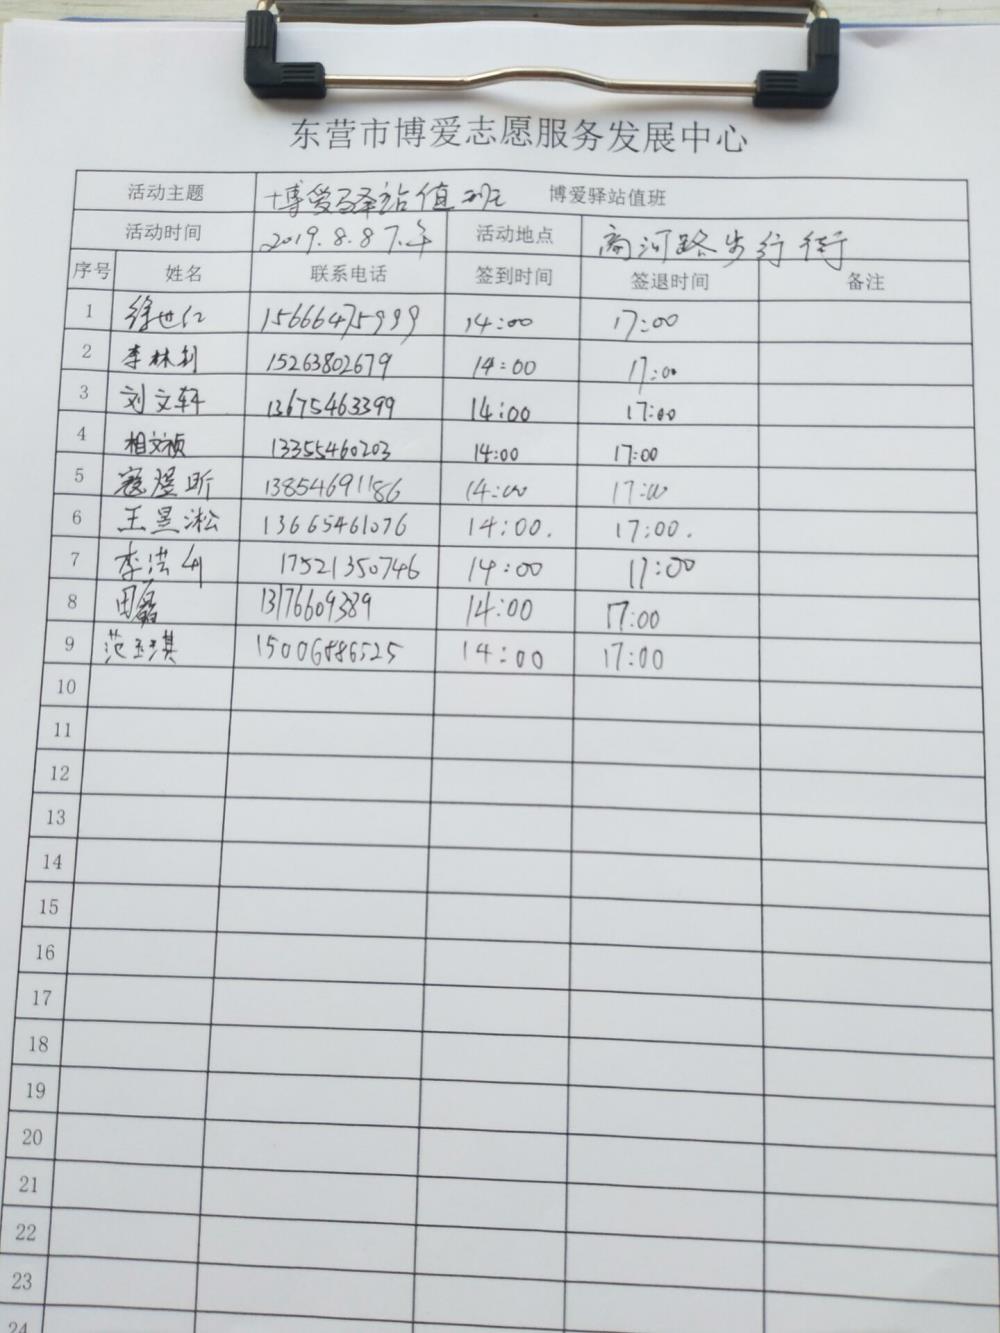 东营市博爱志愿服务发展中心
活动主题 博爱驿站值班 博爱驿站值班
活动时间 2019.8.8下午 活动地点 商河路步行街
序号 姓名 联系电话 签到时间 签退时间 备注
1 徐世仁 15666475999 14:00 17:00
2 李林钊 15263802679 14:00 17:00
3 刘文轩 13675463399 14:00 17:00
4 相文祯 13355460203 14:00 17:00
5 寇煜昕 13854691186 14:00 17:00
6 王昱淞 13665461076 14:00. 17:00.
7 李洪 17521350746 14:00 17:00
8 田磊 13176609389 14:00 17:00
9 范玉琪 15006886525 14:00 17:00
10
11
12
13
14
15
16
17
18
19
20
21
22
23
24